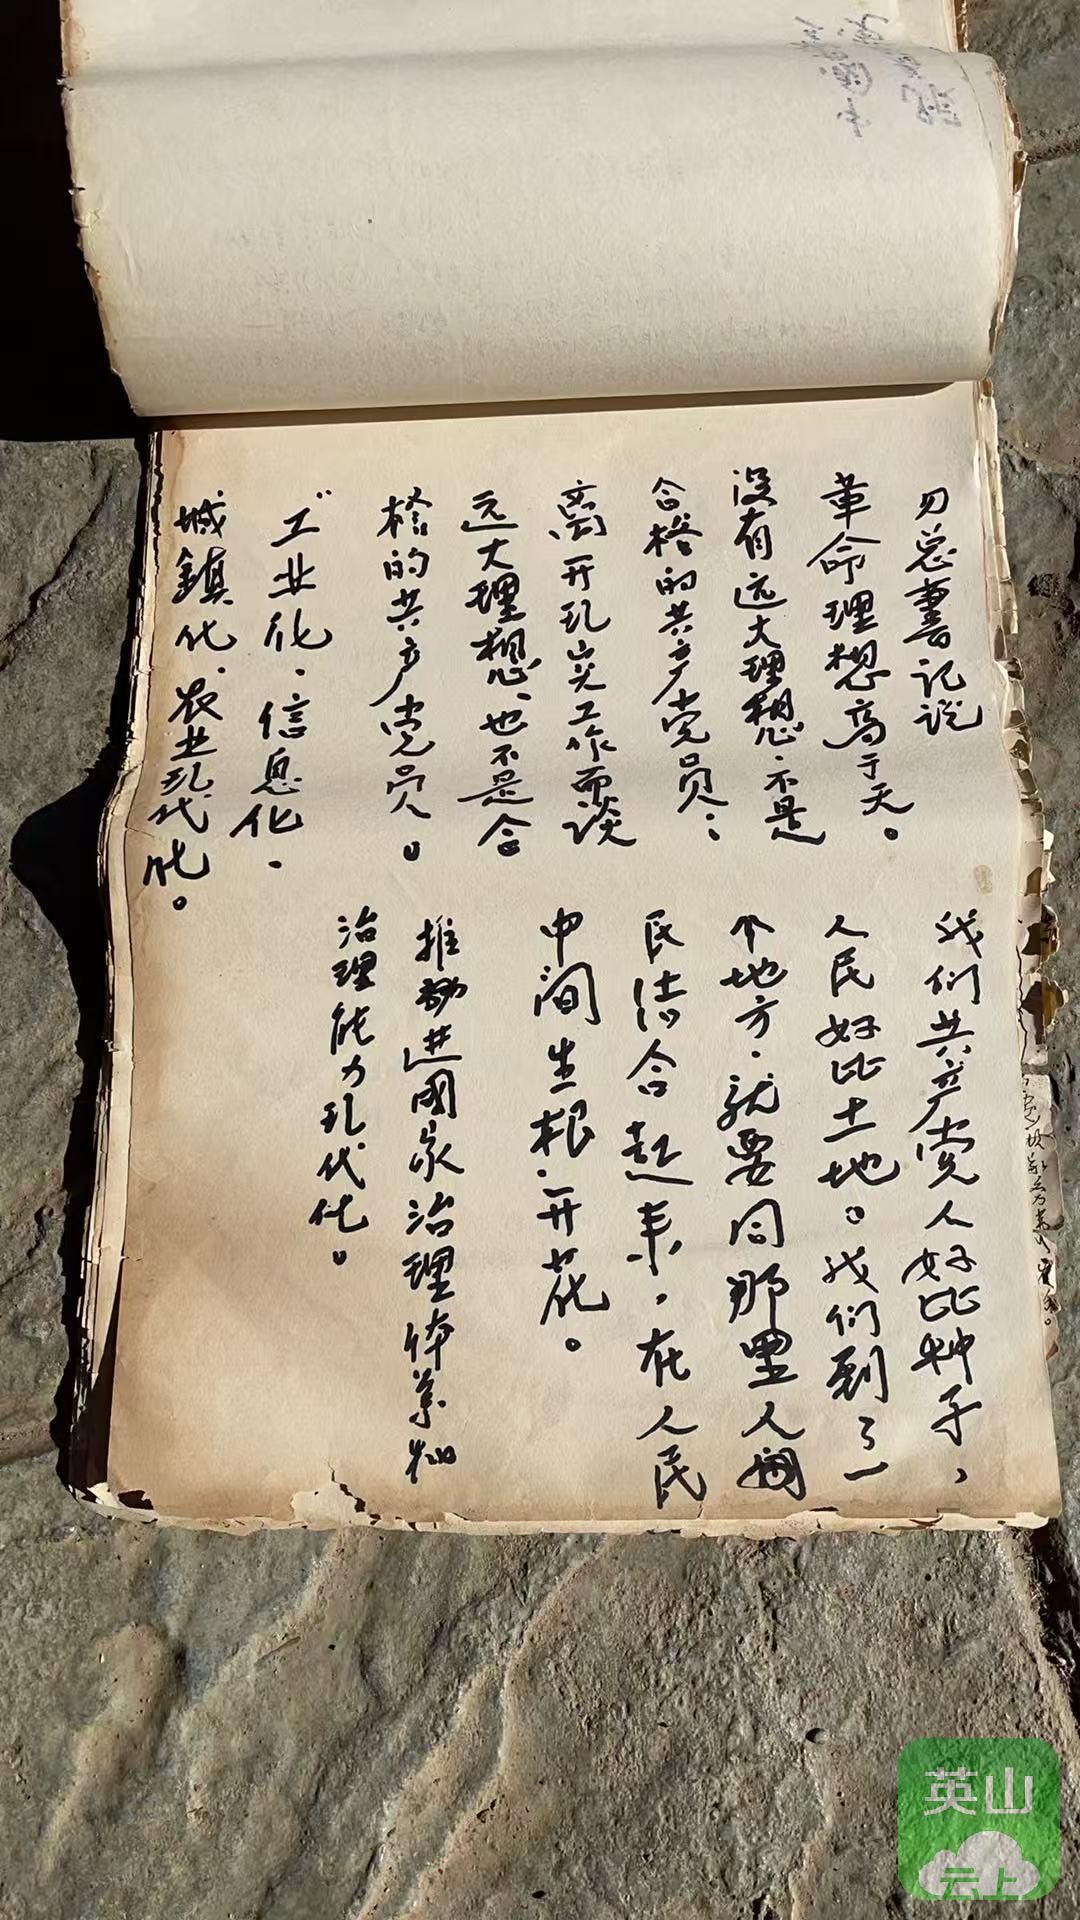 习总书记说
革命理想高于天。
没有远大理想、不是
合格的共产党员；
离开现实工作而谈
远大理想、也不是合
格的共产党员。
工业化、信息化、
城鎮化、农业现代化。
我们共产党人好比种子，
人民好比土地。我们到了一
个地方、就要同那里人
民结合起来，在人民
中间生根、开花。
推进国家治理体系和
治理能力现代化。
英山
云上